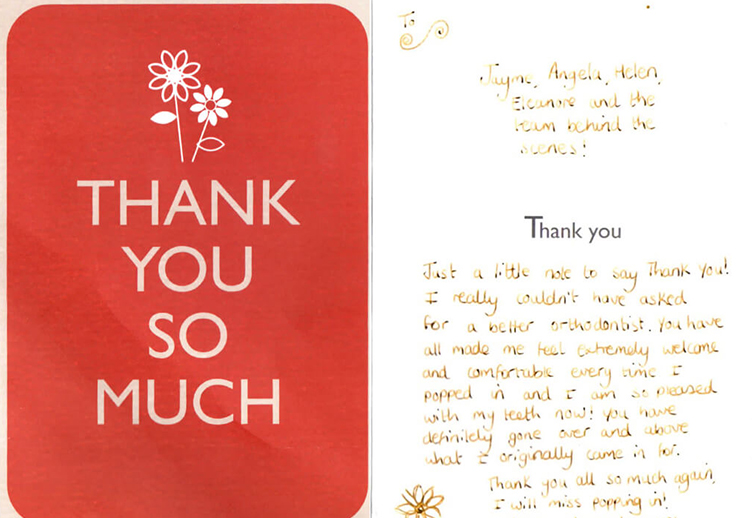 THANK
YOU
SO
MUCH
To
Jayme, Angela, Helen,
Eleanore and the
team behind the
scenes!
Thank you
Just a little note to say Thank You!
I really couldn't have asked
for a better orthodontist. You have
all made me feel extremely welcome
and comfortable every time I
popped in and I am so pleased
with my teeth now! You have
definitely gone over and above
what I originally came in for.
Thank you all so much again,
I will miss popping in!